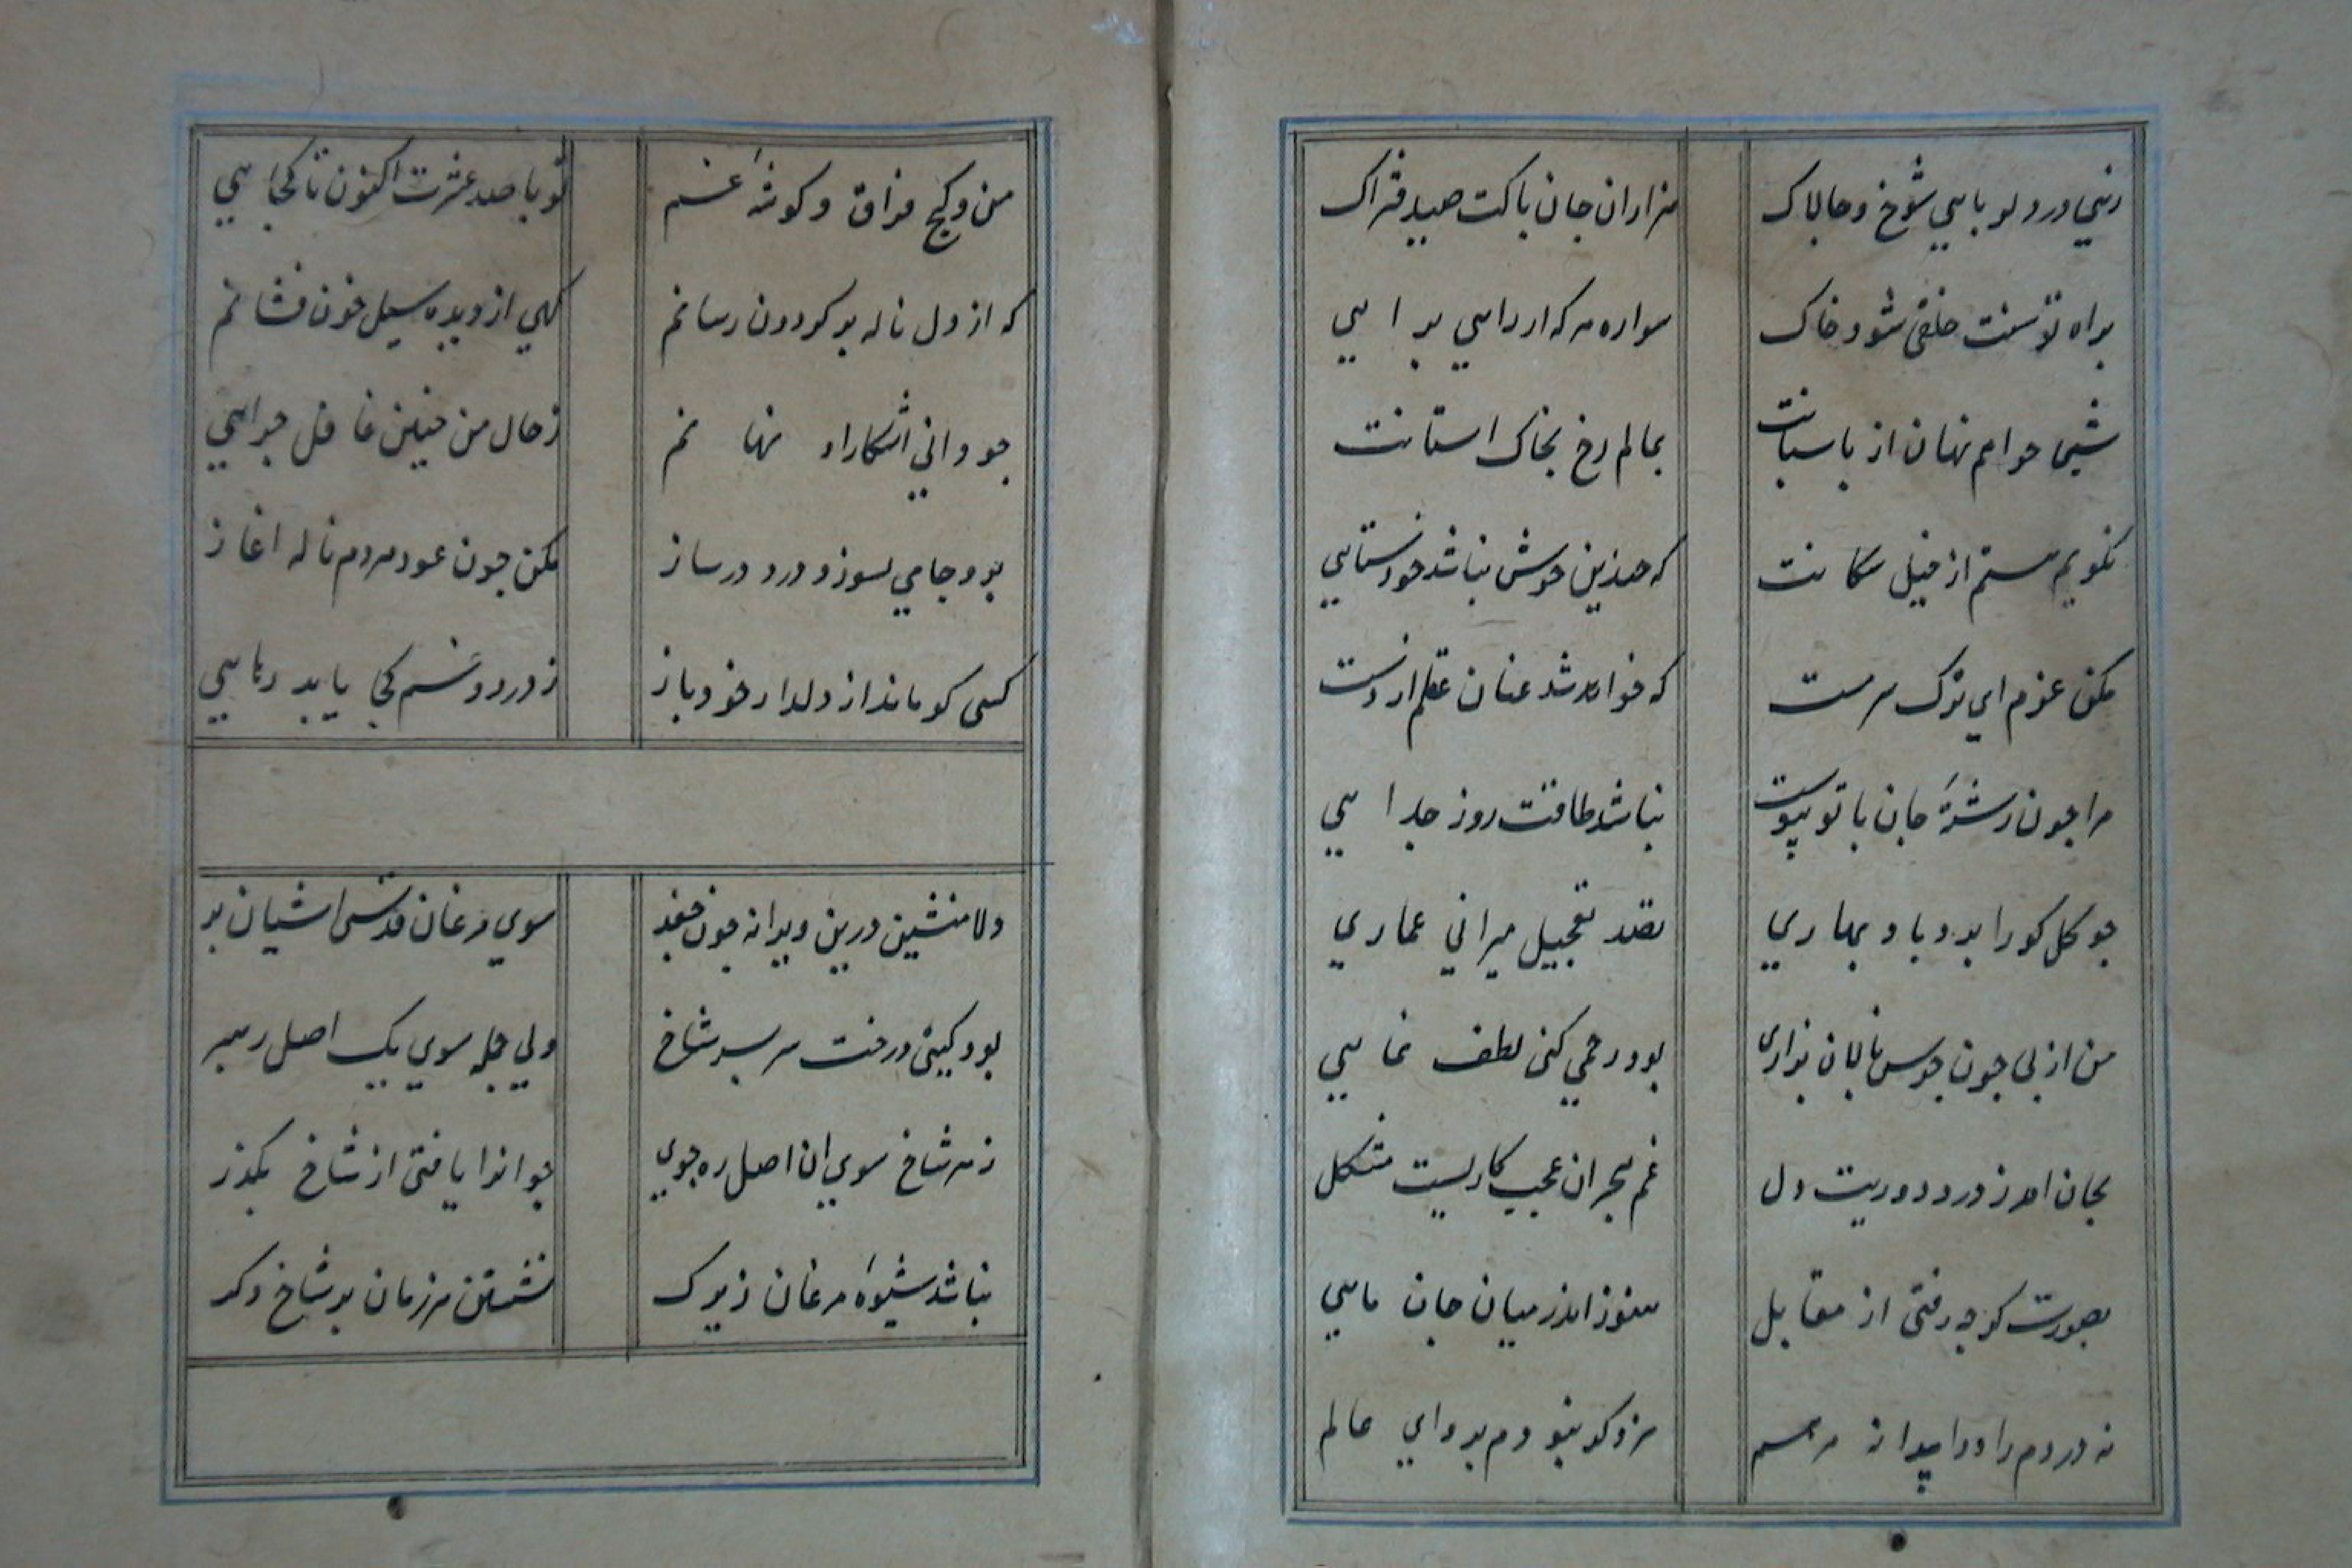 زهی در دلربایی شوخ و چالاک
هزاران جان پاکت صید فتراک
براه توسنت خلقی شود خاک
سواره هر که از راهی برایی
شبی خواهم نهان از پاسبانت
بمالم رخ بخاک استانت
نگویم هستم از خیل سکانت
که چندین خوش نباشد خودستایی
مکن عزم ای ترک سرمست
که خواهد شد عنان عقلم از دست
مرا چون رشتهٔ جان با تو پیوست
نباشد طاقت روز جدایی
چو کل کورا برد باد بهاری
بصد تعجیل میرانی عماری
من از پی چون جرس نالان بزاری
بود رحمی کنی لطف نمایی
بجان امد ز درد دوریت دل
غم هجران عجب کاریست مشکل
بصورت کرچه رفتی از مقابل
هنوز اندر میان جان مایی
نه دردم را دوا پیدا نه مرهم
مرو کز تو بودم پروای عالم
من و کنج فراق و کوشهٔ غم
تو با صد عشرت اکنون تا کجایی
که از دل ناله بر کردون رسانم
کهی از دیده سیل خون فشانم
چو دانی اشکارا و نهانم
ز حال من چنین غافل چرایی
برو جامی بسوز و درد در ساز
مکن چون عود هر دم ناله اغاز
کسی کو ماند از دلدار خود باز
ز درد و غم کجا یابد رهایی
دلا منشین درین ویرانه چون جغد
سوی مرغان قدسی اشیان پر
بود کیتی درخت سر بسر شاخ
ولی جمله سوی یک اصل رهبر
ز هر شاخ سوی ان اصل ره جوی
چو انرا یافتی از شاخ بکذر
نباشد شیوهٔ مرغان زیرک
نشستن هر زمان بر شاخ دکر